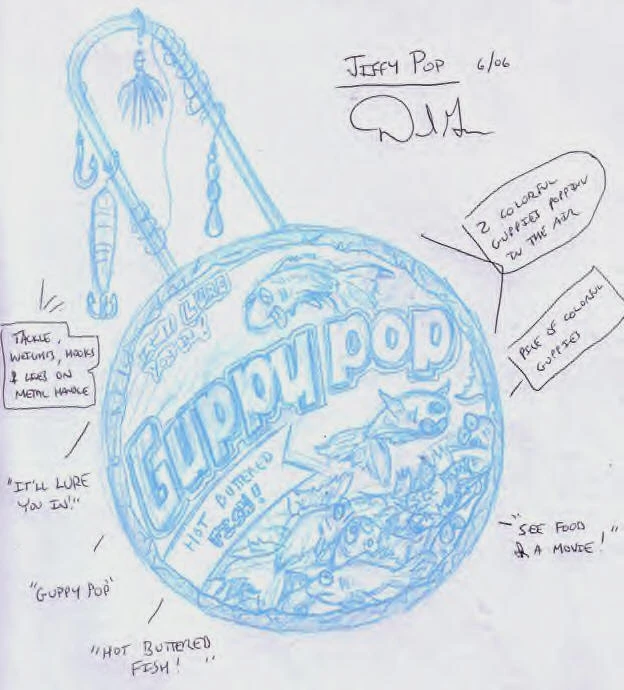 JIFFY POP 6/06
2 COLORFUL
GUPPIES POPPING
IN THE AIR
PILE OF COLORFUL
GUPPIES
TACKLE,
WEIGHTS, HOOKS
& LURES ON
METAL HANDLE
IT'LL LURE
YOU IN!
GUPPY POP
HOT BUTTERED
FISH!!
"IT'LL LURE
YOU IN!"
"GUPPY POP"
"HOT BUTTERED
FISH!"
"SEE FOOD
& A MOVIE!"